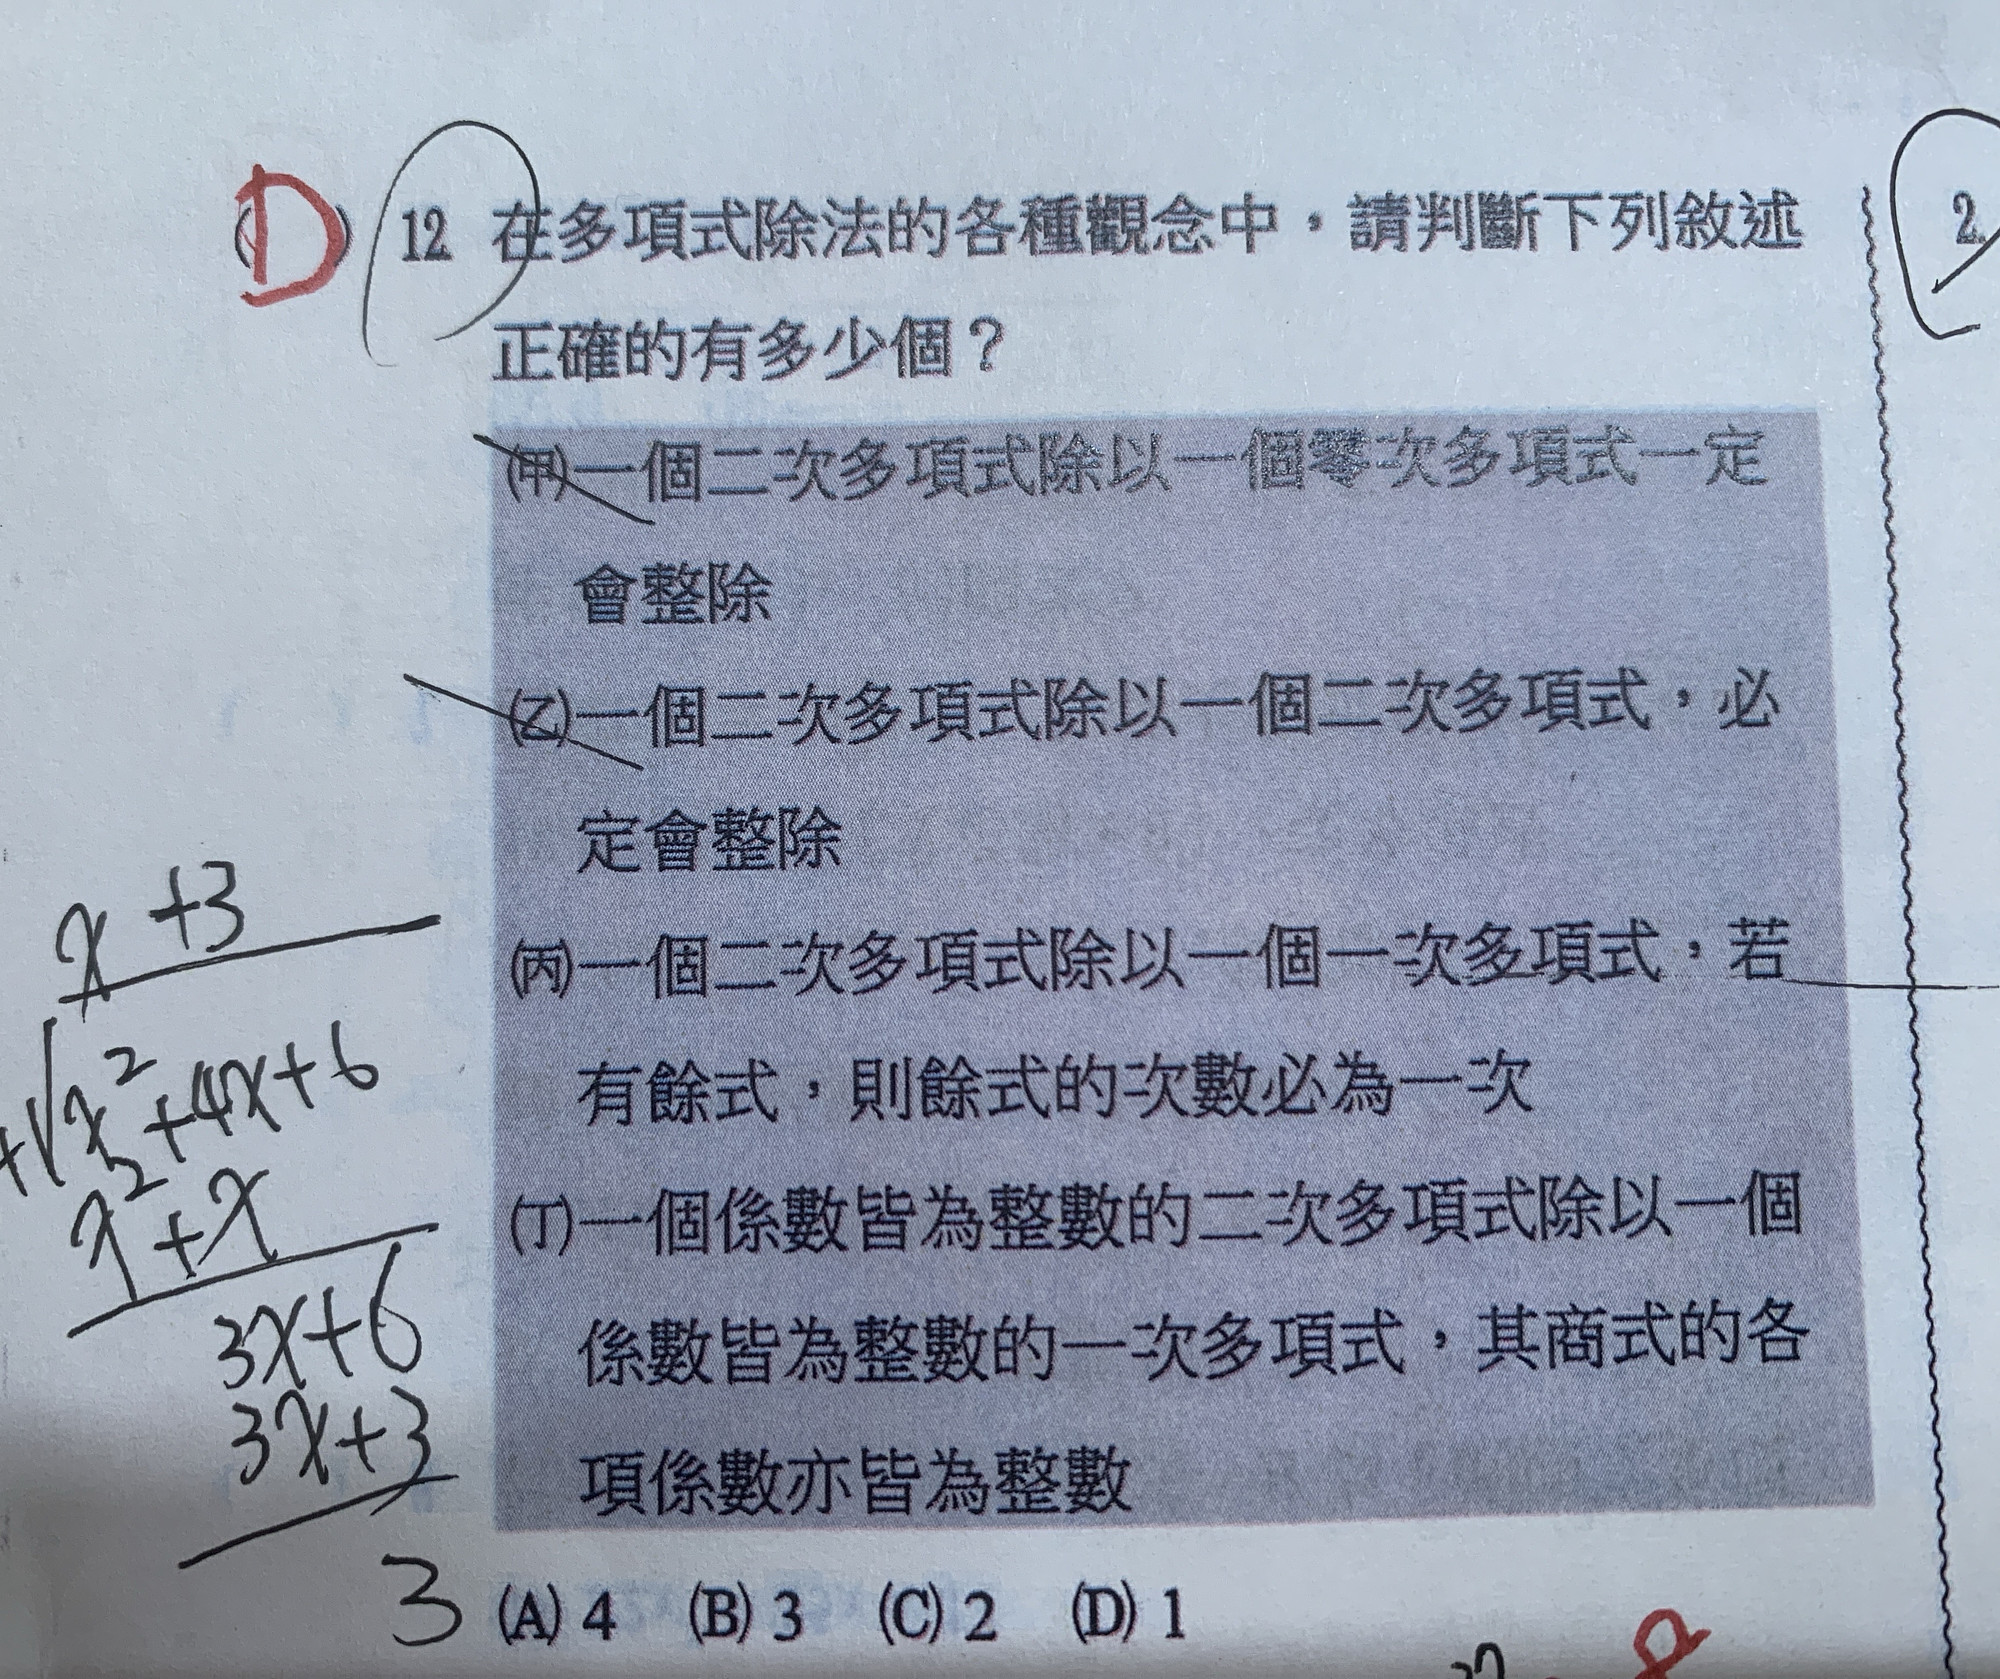 (D) 12 在多項式除法的各種觀念中，請判斷下列敘述
正確的有多少個？
(甲)一個二次多項式除以一個零次多項式一定
會整除
(乙)一個二次多項式除以一個二次多項式，必
定會整除
(丙)一個二次多項式除以一個一次多項式，若
有餘式，則餘式的次數必為一次
(丁)一個係數皆為整數的二次多項式除以一個
係數皆為整數的一次多項式，其商式的各
項係數亦皆為整數
(A) 4 (B) 3 (C) 2 (D) 1
x +3
x²+4x+6
x²+x
3x+6
3x+3
3
2.
8